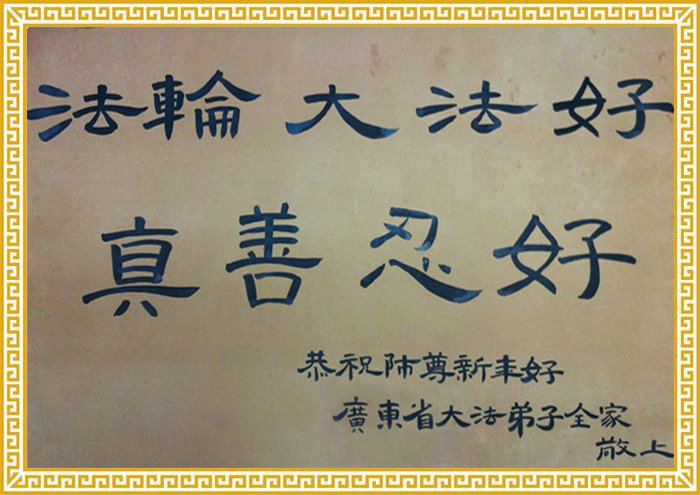 法輪大法好
真善忍好
恭祝師尊新年好
廣東省大法弟子全家
敬上